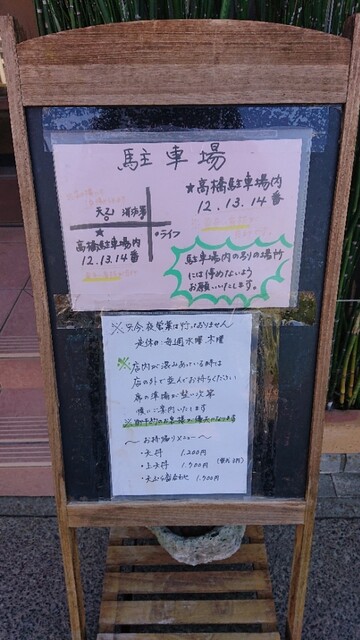 駐車場
★高橋駐車場内
12.13.14番
天乙
●ライフ
★
高橋駐車場内
12.13.14番
駐車場内の別の場所
には停めないよう
お願いいたします。
※只今、夜営業は行っておりません
定休日:毎週水曜、木曜
※店内が混みあっている時は
店の外で並んでお待ちください
席の準備が整い次第
順にご案内いたします
〜お持帰りメニュー〜
・天丼 1,200円
・上天丼 1,700円
1,700円